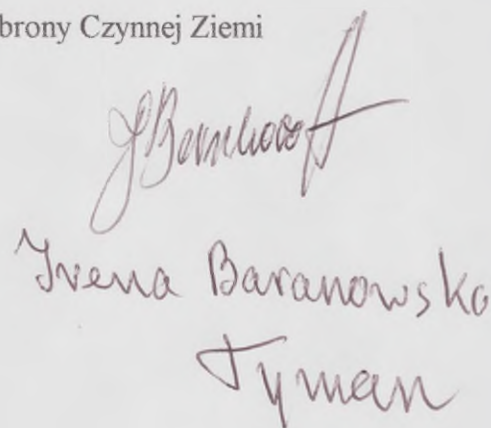 brony Czynnej Ziemi
Irena Baranowska
Tyman